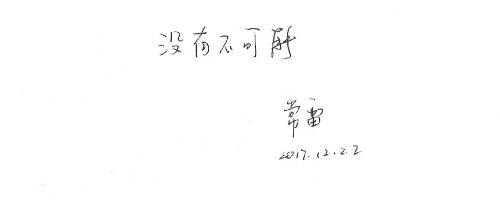 没有不可能
常雷
2017.12.22